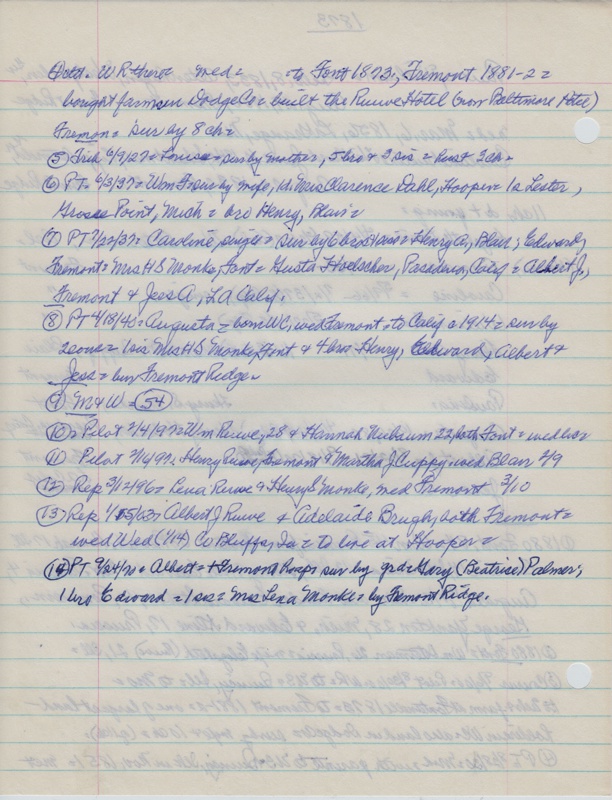 1873
W R there = med = to Font 1873, Fremont 1881-2 =
bought farms in Dodge Co = built the Ruwe Hotel (now Baltimore Hotel)
Fremont = sur by 8 ch =
⑤ Trib 6/9/27 = Louise = sur by mother, 5 bro & 3 sis = husb & 3 ch =
⑥ PT. 6/3/37 = Wm F = sur by wife, 1d Mrs Clarence Dahl, Hooper = 1s Lester,
Grosse Point, Mich = bro Henry, Blair =
⑦ PT 7/22/37 = Caroline, single = sur by 6 bros & sis = Henry Co, Blair; Edward,
Fremont = Mrs HS Monke, Font = Gusta Hoelscher, Pasadena, Calif = Albert J,
Fremont & Jess A, LA Calif.
⑧ PT 4/18/40 = Augusta = born WC, wed Fremont, to Calif c 1914 = sur by
2 sons = 1 sis Mrs HS Monke, Font & 4 bros Henry, Edward, Albert &
Jess = bur Fremont Ridge.
⑨ M & W = 54
⑩ Pilot 2/4/97 = Wm Ruwe, 28 & Hannah 22, both Font = wed
⑪ Pilot 2/14/97. Henry Ruwe, Fremont & Martha J Cuppy wed Blair 2/9
⑫ Rep 3/12/96 = Lena Ruwe & Henry S Monke, med Fremont 3/10
⑬ Rep 1/15/03, Albert J Ruwe & Adelaide Brugh, both Fremont =
wed Wed (1/14) Co Bluffs, Ia = to live at Hooper =
⑭ PT 9/24/70 = Albert = + Fremont Hosp sur by grd = Gary (Beatrice) Palmer,
1 bro Edward = 1 sis = Mrs Lena Monke = by Fremont Ridge.